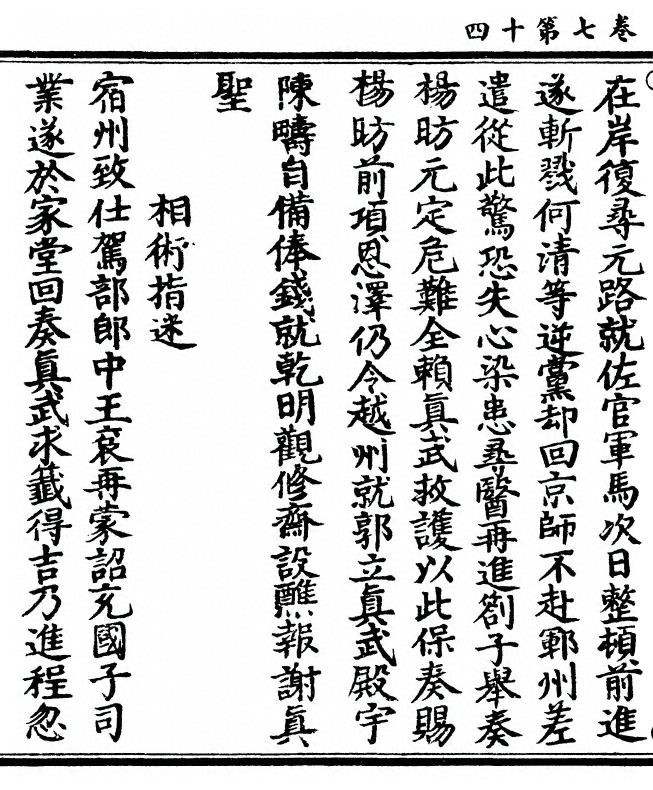 卷七第十四
在岸復尋元路就佐官軍馬次日整頓前進
遂斬戮何清等逆黨却回京師不赴鄆州差
遣從此驚恐失心染患尋醫再進劄子舉奏
楊昉元定危難全賴真武救護以此保奏賜
楊昉前項恩澤仍令越州就郭立真武殿宇
陳疇自備俸錢就乾明觀修齋設醮報謝真
聖
相術指迷
宿州致仕駕部郎中王袞再蒙詔充國子司
業遂於家堂回奏真武求籤得吉乃進程忽